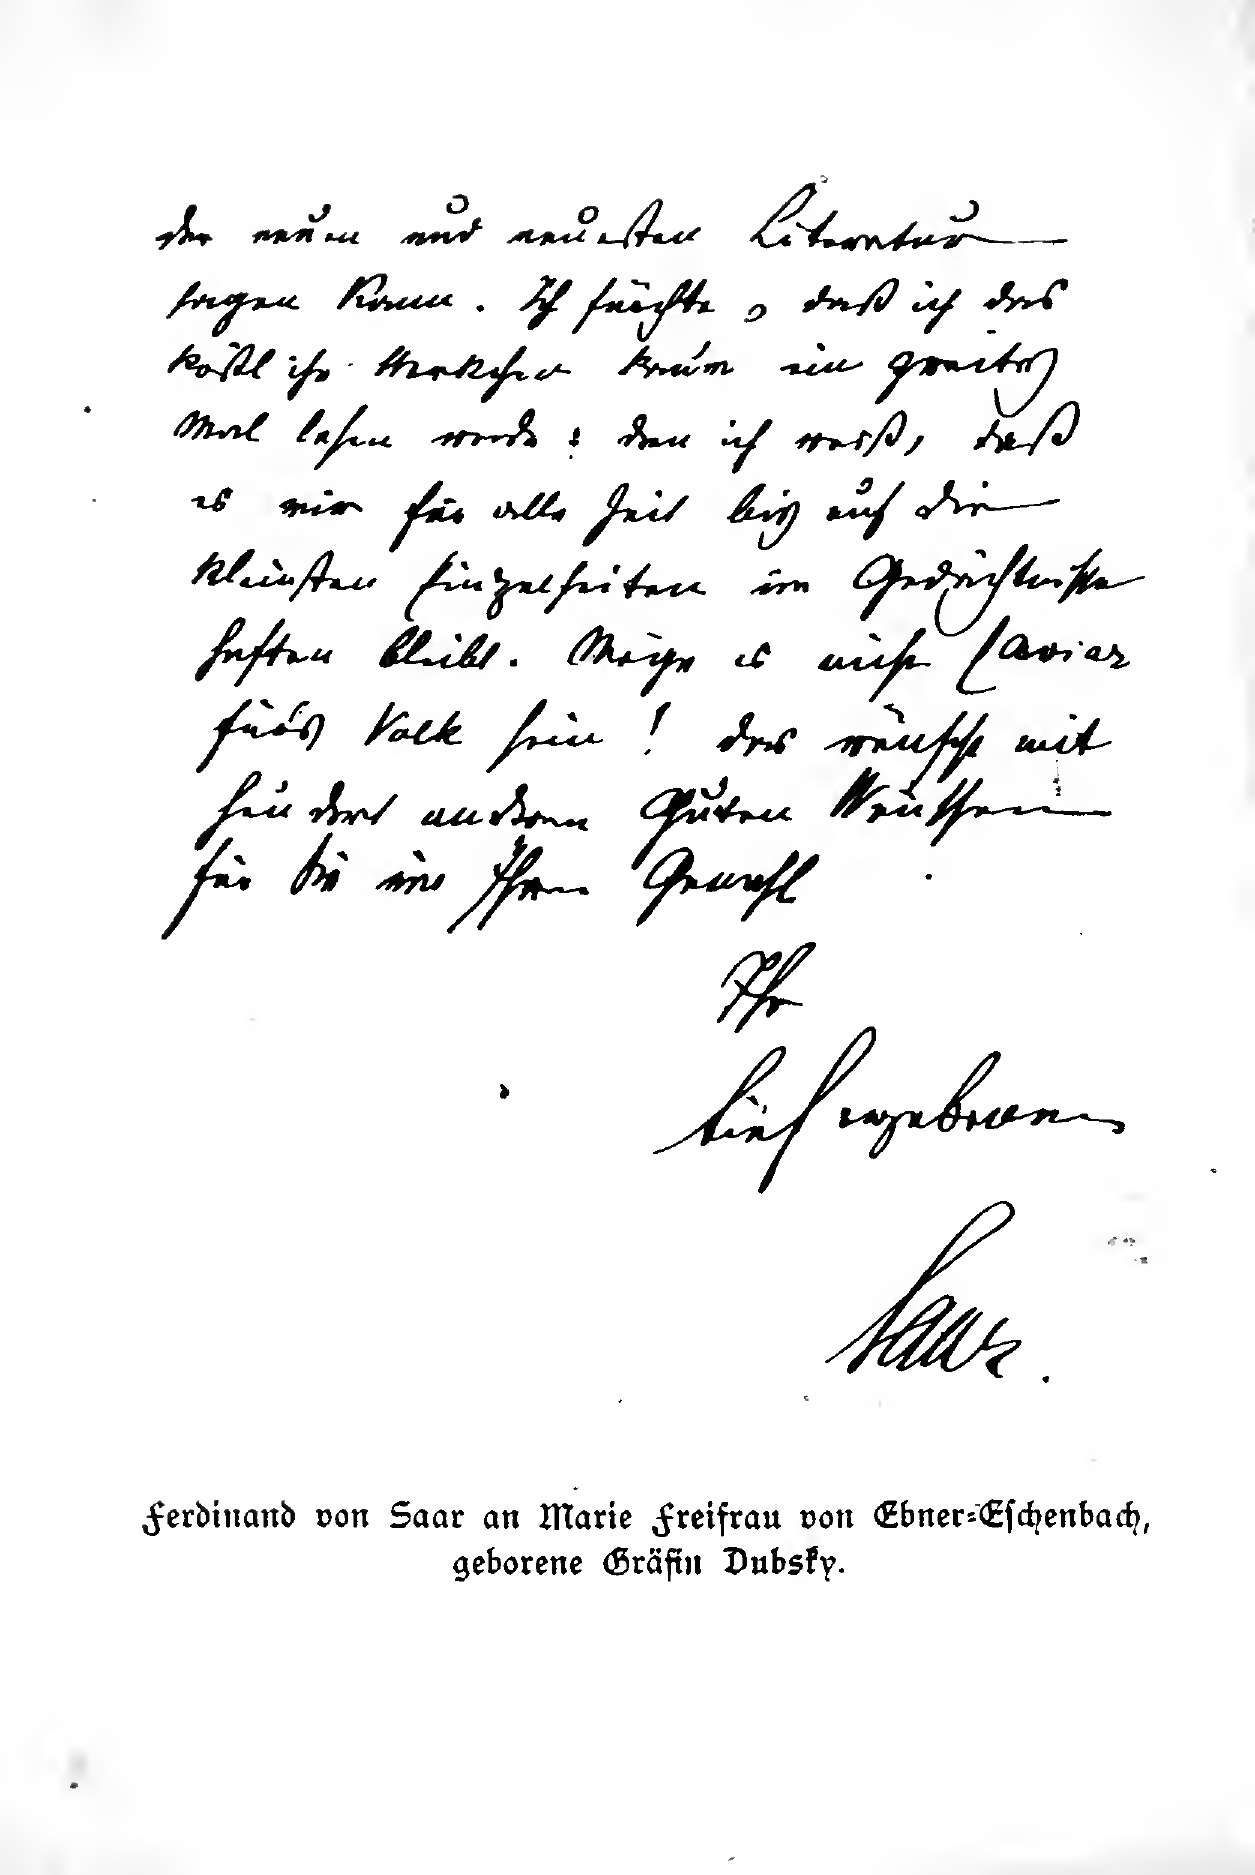 der neuen und neuesten Literatur
sagen kann. Ich fürchte, daß ich das
köstliche Werkchen kaum ein zweites
Mal lesen werde: denn ich weiß, daß
es mir für alle Zeit bis auf die
kleinsten Einzelheiten im Gedächtnisse
haften bleibt. Möge es nicht Caviar
für's Volk sein! Das wünscht mit
hundert anderen Guten Wünschen
für Sie und Ihren Gemahl
Ihr
tief ergebener
Saar.
Ferdinand von Saar an Marie Freifrau von Ebner-Eschenbach,
geborene Gräfin Dubsky.